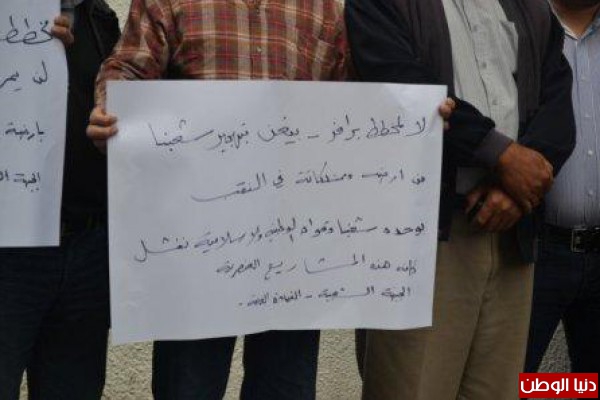 لا لمخطط برافر - بيغن بتهجير شعبنا
من ارضه وممتلكاته في النقب
بوحدة شعبنا وقواه الوطنية والاسلامية نفشل
كافة هذه المشاريع العنصرية
الجبهة الشعبية - القيادة العامة -
مخطط
لن يمر
الجبهة
دنيا الوطن